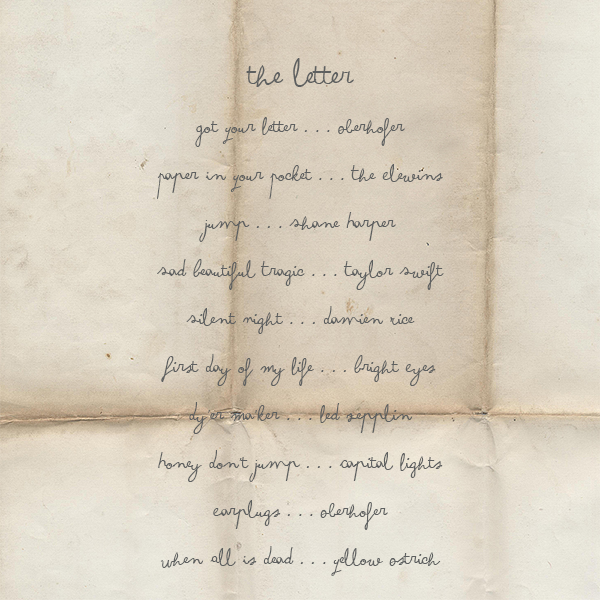 the letter
got your letter . . . oberhofer
paper in your pocket . . . the elewins
jump . . . shane harper
sad beautiful tragic . . . taylor swift
silent night . . . damien rice
first day of my life . . . bright eyes
dy'er maker . . . led zepplin
honey don't jump . . . capital lights
earplugs . . . oberhofer
when all is dead . . . yellow ostrich